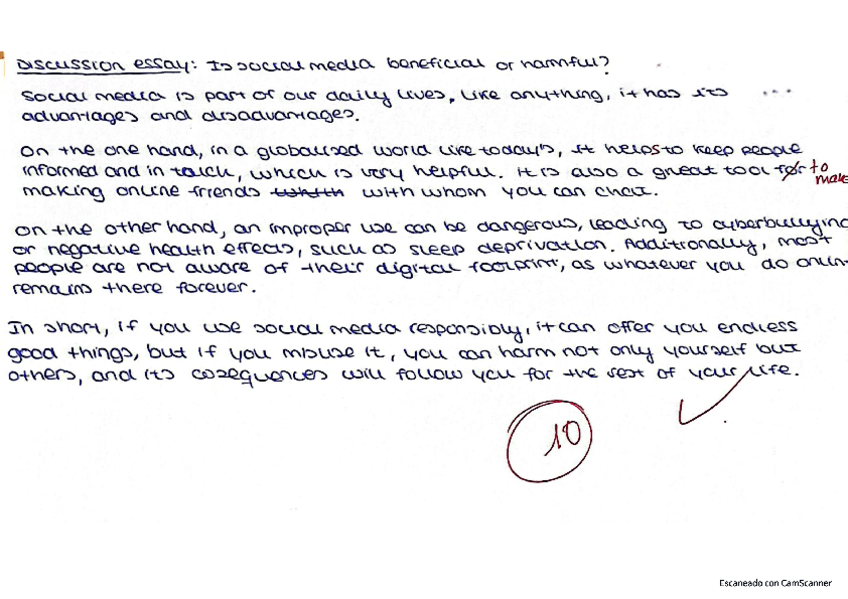 DISCUSSION ESSAY: Is social media beneficial or harmful?
Social media is part of our daily lives, like anything, it has its ...
advantages and disadvantages.
On the one hand, in a globalised world like today's, it helps to keep people
informed and in touch, which is very helpful. It is also a great tool for to
make
making online friends with whom you can chat.
On the other hand, an improper use can be dangerous, leading to cyberbullying
or negative health effects, such as sleep deprivation. Additionally, most
people are not aware of their digital footprint, as whatever you do onlin
remains there forever.
In short, if you use social media responsibly, it can offer you endless
good things, but if you misuse it, you can harm not only yourself but
others, and its cosequences will follow you for the rest of your life.
10
Escaneado con CamScanner